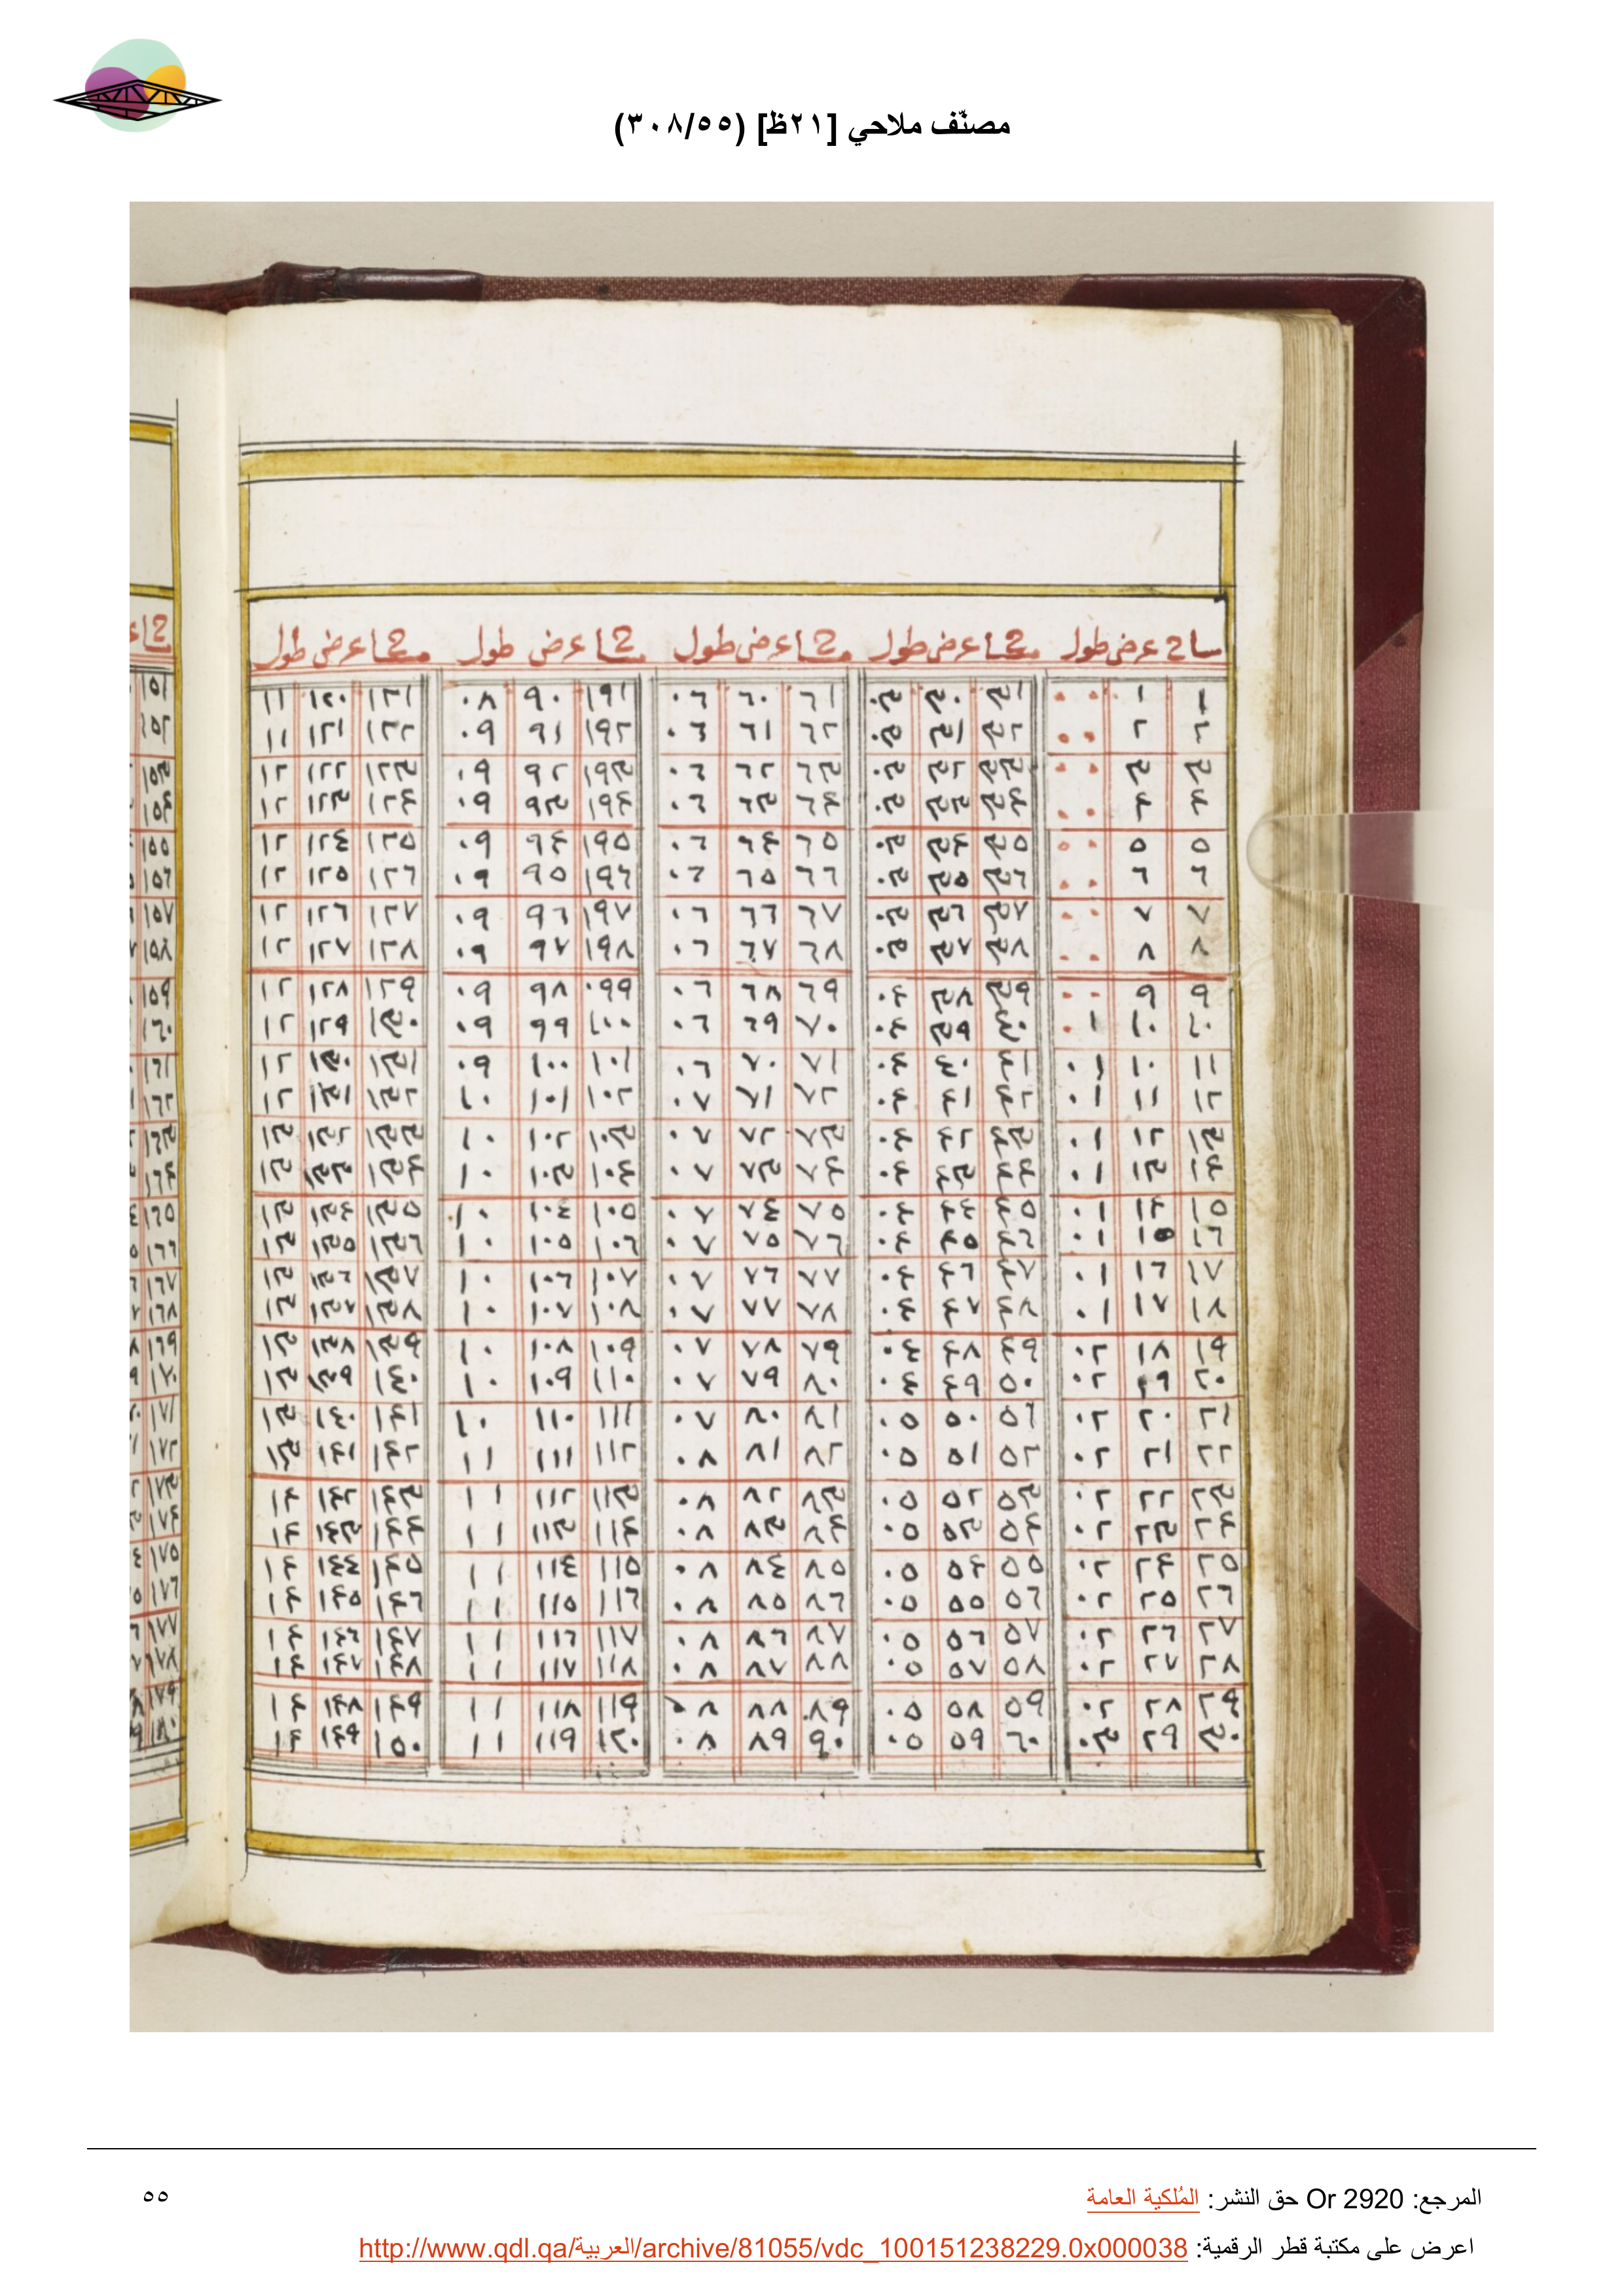 مصنّف ملاحي [٢١ظ] (٣٠٨/٥٥)
ساح عرض طول مساح عرض طول مساح عرض طول مساح عرض طول مساح عرض طول
١ ١ ٠٠ ٣١ ٣٠ ٠٣ ٦١ ٦٠ ٠٦ ١٩١ ٩٠ ٠٨ ١٢١ ١٢٠ ١١
٢ ٢ ٠٠ ٣٢ ٣١ ٠٣ ٦٢ ٦١ ٠٦ ١٩٢ ٩١ ٠٩ ١٢٢ ١٢١ ١١
٣ ٣ ٠٠ ٣٣ ٣٢ ٠٣ ٦٣ ٦٢ ٠٦ ١٩٣ ٩٢ ٠٩ ١٢٣ ١٢٢ ١٢
٤ ٤ ٠٠ ٣٤ ٣٣ ٠٣ ٦٤ ٦٣ ٠٦ ١٩٤ ٩٣ ٠٩ ١٢٤ ١٢٣ ١٢
٥ ٥ ٠٠ ٣٥ ٣٤ ٠٣ ٦٥ ٦٤ ٠٦ ١٩٥ ٩٤ ٠٩ ١٢٥ ١٢٤ ١٢
٦ ٦ ٠٠ ٣٦ ٣٥ ٠٣ ٦٦ ٦٥ ٠٦ ١٩٦ ٩٥ ٠٩ ١٢٦ ١٢٥ ١٢
٧ ٧ ٠٠ ٣٧ ٣٦ ٠٣ ٦٧ ٦٦ ٠٦ ١٩٧ ٩٦ ٠٩ ١٢٧ ١٢٦ ١٢
٨ ٨ ٠٠ ٣٨ ٣٧ ٠٣ ٦٨ ٦٧ ٠٦ ١٩٨ ٩٧ ٠٩ ١٢٨ ١٢٧ ١٢
٩ ٩ ٠٠ ٣٩ ٣٨ ٠٤ ٦٩ ٦٨ ٠٦ ٠٩٩ ٩٨ ٠٩ ١٢٩ ١٢٨ ١٢
١٠ ١٠ ٠١ ٤٠ ٣٩ ٠٤ ٧٠ ٦٩ ٠٦ ١٠٠ ٩٩ ٠٩ ١٣٠ ١٢٩ ١٢
١١ ١٠ ٠١ ٤١ ٤٠ ٠٤ ٧١ ٧٠ ٠٦ ١٠١ ١٠٠ ٠٩ ١٣١ ١٣٠ ١٢
١٢ ١١ ٠١ ٤٢ ٤١ ٠٤ ٧٢ ٧١ ٠٧ ١٠٢ ١٠١ ١٠ ١٣٢ ١٣١ ١٢
١٣ ١٢ ٠١ ٤٣ ٤٢ ٠٤ ٧٣ ٧٢ ٠٧ ١٠٣ ١٠٢ ١٠ ١٣٣ ١٣٢ ١٣
١٤ ١٣ ٠١ ٤٤ ٤٣ ٠٤ ٧٤ ٧٣ ٠٧ ١٠٤ ١٠٣ ١٠ ١٣٤ ١٣٣ ١٣
١٥ ١٤ ٠١ ٤٥ ٤٤ ٠٤ ٧٥ ٧٤ ٠٧ ١٠٥ ١٠٤ ١٠ ١٣٥ ١٣٤ ١٣
١٦ ١٥ ٠١ ٤٦ ٤٥ ٠٤ ٧٦ ٧٥ ٠٧ ١٠٦ ١٠٥ ١٠ ١٣٦ ١٣٥ ١٣
١٧ ١٦ ٠١ ٤٧ ٤٦ ٠٤ ٧٧ ٧٦ ٠٧ ١٠٧ ١٠٦ ١٠ ١٣٧ ١٣٦ ١٣
١٨ ١٧ ٠١ ٤٨ ٤٧ ٠٤ ٧٨ ٧٧ ٠٧ ١٠٨ ١٠٧ ١٠ ١٣٨ ١٣٧ ١٣
١٩ ١٨ ٠٢ ٤٩ ٤٨ ٠٤ ٧٩ ٧٨ ٠٧ ١٠٩ ١٠٨ ١٠ ١٣٩ ١٣٨ ١٣
٢٠ ١٩ ٠٢ ٥٠ ٤٩ ٠٤ ٨٠ ٧٩ ٠٧ ١١٠ ١٠٩ ١٠ ١٤٠ ١٣٩ ١٣
٢١ ٢٠ ٠٢ ٥١ ٥٠ ٠٥ ٨١ ٨٠ ٠٧ ١١١ ١١٠ ١٠ ١٤١ ١٤٠ ١٣
٢٢ ٢١ ٠٢ ٥٢ ٥١ ٠٥ ٨٢ ٨١ ٠٨ ١١٢ ١١١ ١١ ١٤٢ ١٤١ ١٣
٢٣ ٢٢ ٠٢ ٥٣ ٥٢ ٠٥ ٨٣ ٨٢ ٠٨ ١١٣ ١١٢ ١١ ١٤٣ ١٤٢ ١٤
٢٤ ٢٣ ٠٢ ٥٤ ٥٣ ٠٥ ٨٤ ٨٣ ٠٨ ١١٤ ١١٣ ١١ ١٤٤ ١٤٣ ١٤
٢٥ ٢٤ ٠٢ ٥٥ ٥٤ ٠٥ ٨٥ ٨٤ ٠٨ ١١٥ ١١٤ ١١ ١٤٥ ١٤٤ ١٤
٢٦ ٢٥ ٠٢ ٥٦ ٥٥ ٠٥ ٨٦ ٨٥ ٠٨ ١١٦ ١١٥ ١١ ١٤٦ ١٤٥ ١٤
٢٧ ٢٦ ٠٢ ٥٧ ٥٦ ٠٥ ٨٧ ٨٦ ٠٨ ١١٧ ١١٦ ١١ ١٤٧ ١٤٦ ١٤
٢٨ ٢٧ ٠٢ ٥٨ ٥٧ ٠٥ ٨٨ ٨٧ ٠٨ ١١٨ ١١٧ ١١ ١٤٨ ١٤٧ ١٤
٢٩ ٢٨ ٠٢ ٥٩ ٥٨ ٠٥ ٨٩ ٨٨ ٠٨ ١١٩ ١١٨ ١١ ١٤٩ ١٤٨ ١٤
٣٠ ٢٩ ٠٣ ٦٠ ٥٩ ٠٥ ٩٠ ٨٩ ٠٨ ١٢٠ ١١٩ ١١ ١٥٠ ١٤٩ ١٤
المرجع: Or 2920 حق النشر: المُلكية العامة
٥٥
اعرض على مكتبة قطر الرقمية: http://www.qdl.qa/العربية/archive/81055/vdc_100151238229.0x000038